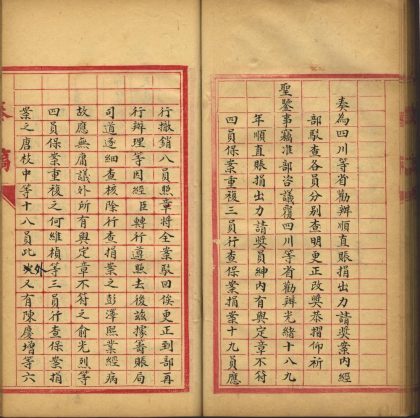 奏為四川等省勸辦順直賑捐出力請奬案內經
部駁查各員分別查明更正改奬恭摺仰祈
聖鑒事竊准部咨議覆四川等省勸辦光緒十八九
年順直賑捐出力請奬員紳內有與定章不符
四員保案重複三員行查保案捐案十九員應
行撤銷八員照章將全案駁回俟更正到部再
行辦理等因經臣轉行遵照去後茲據籌賑局
司道逐細查核除行查捐案之彭澤熙業經病
故應無庸議外所有與定章不符之俞光烈等
四員保案重複之何維楨等三員行查保案捐
案之唐枝中等十八員此外又有陳慶增等六
奏稿